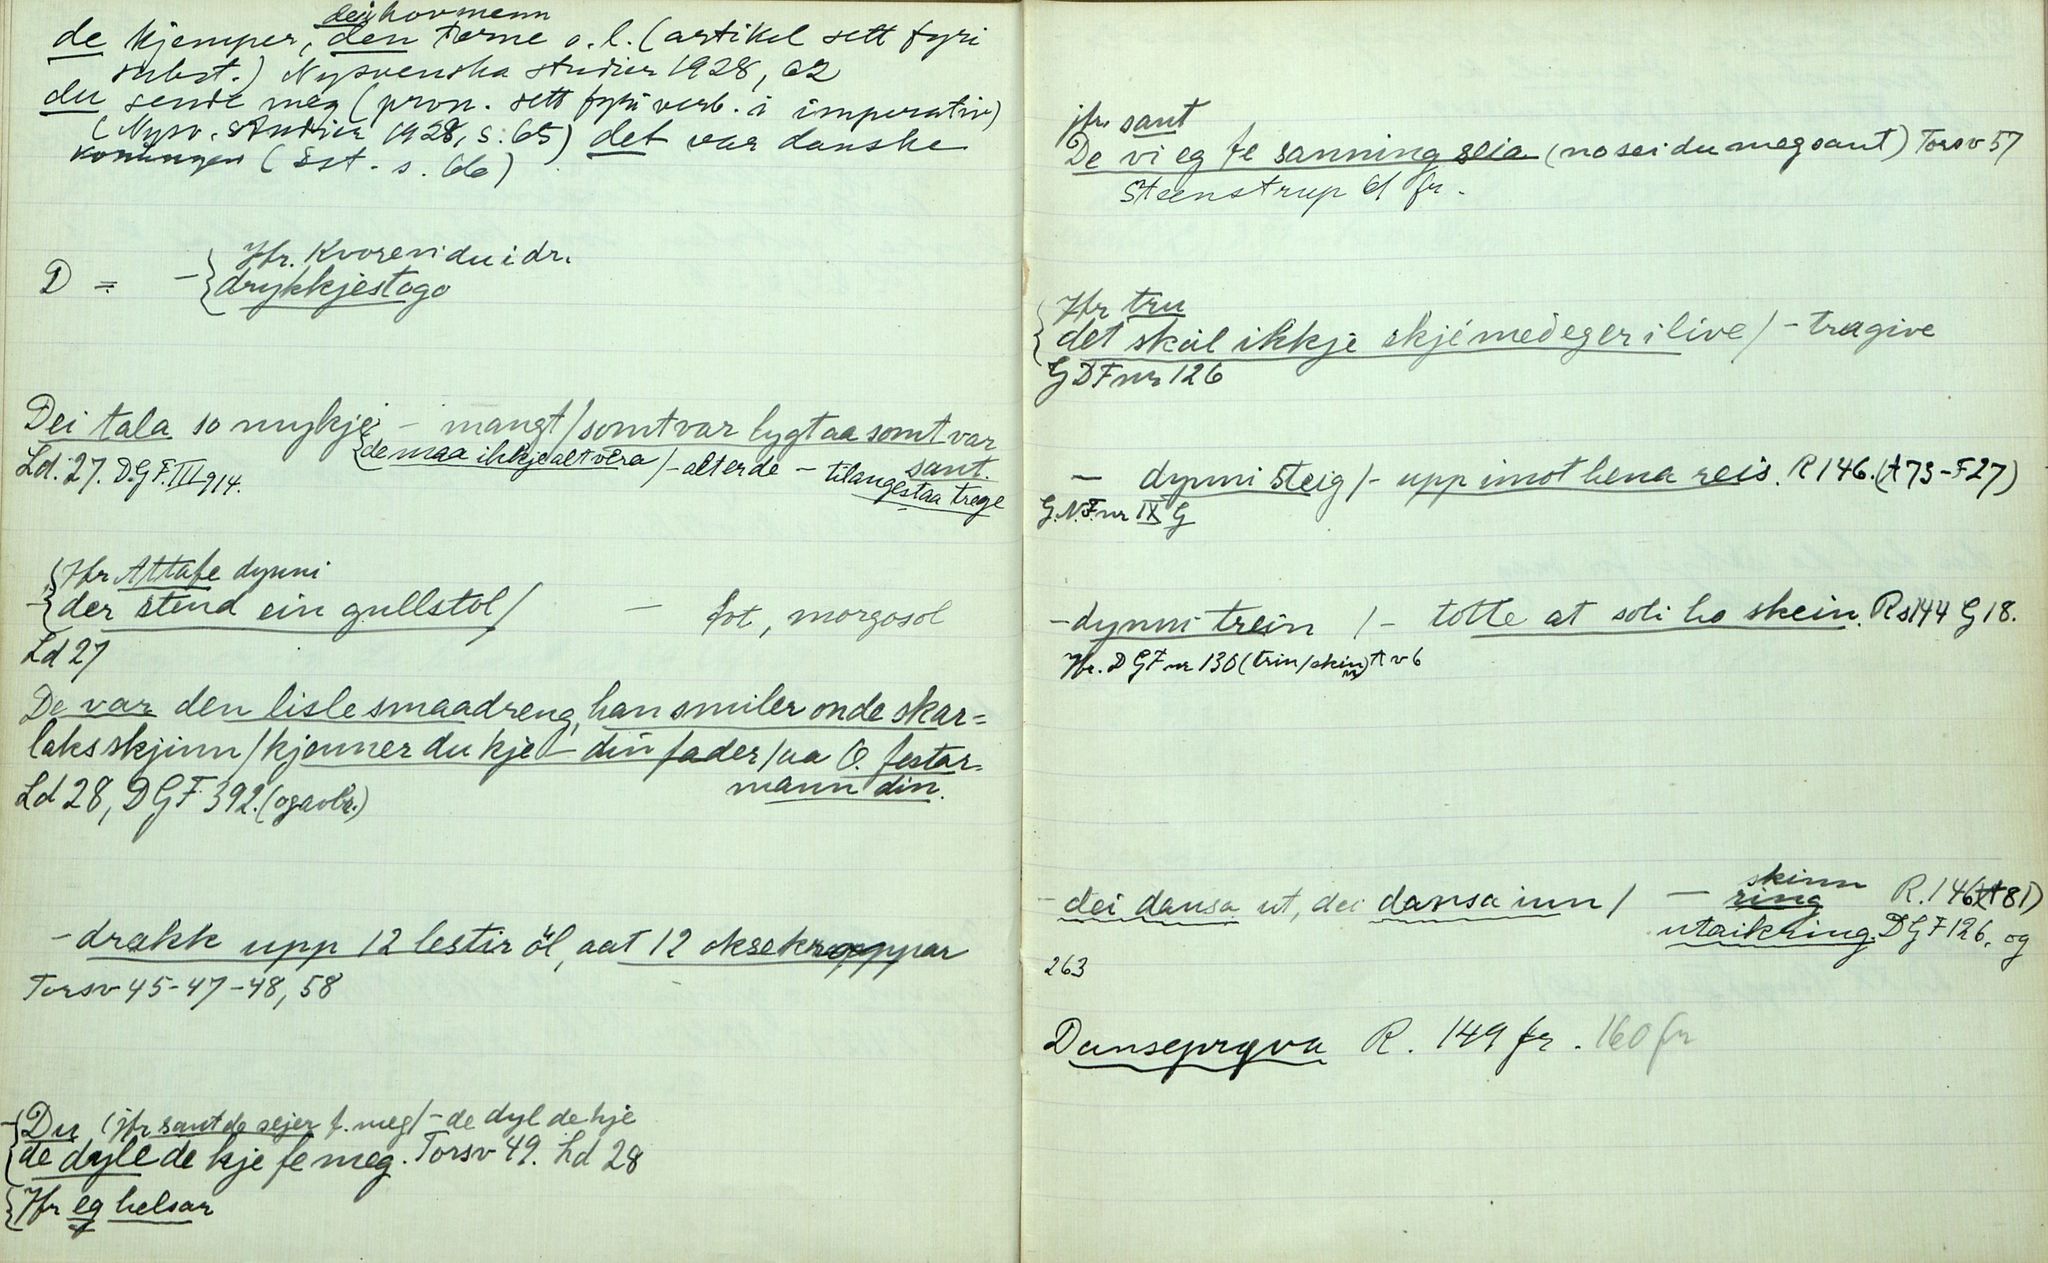 dei hovmenn
de kjemper, den terne o.l. (artikel sett fyri
subst.) Nysvenska studier 1928, 62
du sende meg (pron. sett fyri verb. i imperativ)
(Nysv. studier 1928, s. 65) det var danske
kontungen (Sst. s. 66)
D = - { Jfr. Kvorevidu i dr.
drykkjestogo
Dei tala so mykje - mangt / somt var lygt aa somt var
sant.
Ld. 27. D.G.F. III 914. { de maa ikkje alt vera / - alt er de - til angest aa trege
{ Jfr Attafe dynni
- { der stend ein gullstol / - fot, morgosol
Ld 27
De var den lisle smaadreng, han smiler onde skar=
laksskjinn / kjenner du kje - din fader / aa O. festar=
mann din.
Ld 28, DGF 392. (og avbr.)
- drakk upp 12 lestir öl, aat 12 oksekroppar
Torsv 45-47-48, 58
- { Du (jfr sant de sejer f. meg / - de dyl de kje
de dyle de kje fe meg. Torsv 49. Ld 28
{ Jfr eg helsar
jfr. sant
De vi eg fe sanning seia (no sei du meg sant) Torsv 57
Steenstrup 61 fr.
{ Jfr tru
det skal ikkje skje med eg er i live / - tragive
GDF nr 126
- dynni steig / - upp imot hena reis. R 146. (A 73 - F 27)
G.N.F. nr IX G
- dynni trein / - totte at soli ho skein. R s 144 G 18.
Jfr. DGF nr 130 (trin/skin) A v 6
- dei dansa ut, dei dansa inn / - skinn R. 146 (A 81)
ring
utaikring. DGF 126. og
263
Danseprøva R. 149 fr. 160 fr